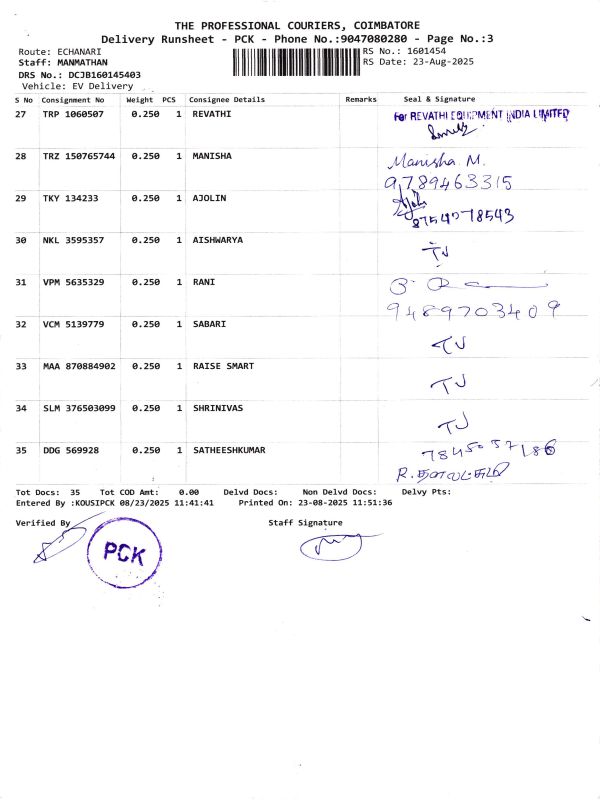 THE PROFESSIONAL COURIERS, COIMBATORE
Delivery Runsheet - PCK - Phone No.:9047080280 - Page No.:3
Route: ECHANARI
RS No.: 1601454
Staff: MANMATHAN
RS Date: 23-Aug-2025
DRS No.: DCJB160145403
Vehicle: EV Delivery
S No Consignment No Weight PCS Consignee Details Remarks Seal & Signature
27 TRP 1060507 0.250 1 REVATHI For REVATHI EQUIPMENT INDIA LIMITED
28 TRZ 150765744 0.250 1 MANISHA Manisha M.
9789463315
29 TKY 134233 0.250 1 AJOLIN
8754078543
30 NKL 3595357 0.250 1 AISHWARYA TJ
31 VPM 5635329 0.250 1 RANI
9489703409
32 VCM 5139779 0.250 1 SABARI TJ
33 MAA 870884902 0.250 1 RAISE SMART TJ
34 SLM 376503099 0.250 1 SHRINIVAS TJ
35 DDG 569928 0.250 1 SATHEESHKUMAR
Tot Docs: 35 Tot COD Amt: 0.00 Delvd Docs: Non Delvd Docs: Delvy Pts:
Entered By :KOUSIPCK 08/23/2025 11:41:41 Printed On: 23-08-2025 11:51:36
Verified By Staff Signature
PCK